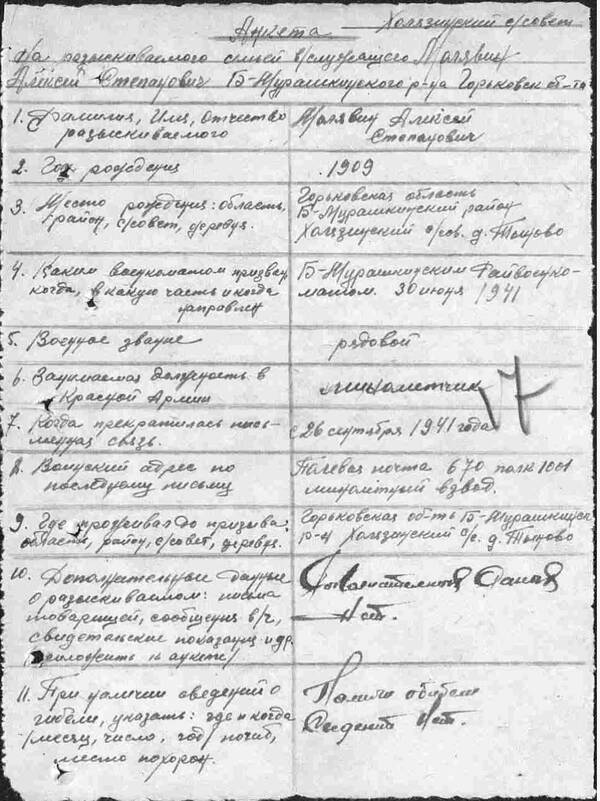 Анкета
Холязинский с/совет
На разыскиваемого семьей в/служащего Малявин
Алексей Степанович Б-Мурашкинского р-на Горьковск об-ти
1. Фамилия, Имя, Отчество
разыскиваемого
Малявин Алексей
Степанович
2. Год рождения
1909
3. Место рождения: область,
район, с/совет, деревня.
Горьковская область
Б-Мурашкинский район
Холязинский с/сов. д.
4. Каким военкоматом призван
когда, в какую часть и когда
направлен
Б-Мурашкинским Райвоенко-
матом. 30 июня 1941
5. Военное звание
рядовой
6. Занимаемая должность в
Красной Армии
минометчик
17
7. Когда прекратилась пись-
менная связь.
с 26 сентября 1941 года
8. Воинский адрес по
последнему письму
Полевая почта 670 полк 1001
минометный взвод.
9. Где проживал до призыва:
область, район, с/совет, деревня.
Горьковская об-ть Б-Мурашкинск
р-н Холязинский с/с. д.
10. Дополнительные данные
о разыскиваемом: письма
товарищей, сообщения в/ч,
свидетельские показания и др.
/приложить к анкете/
Нет.
11. При наличии сведений о
гибели, указать: где и когда
/месяц, число, год/ погиб,
место похорон.
Нет.